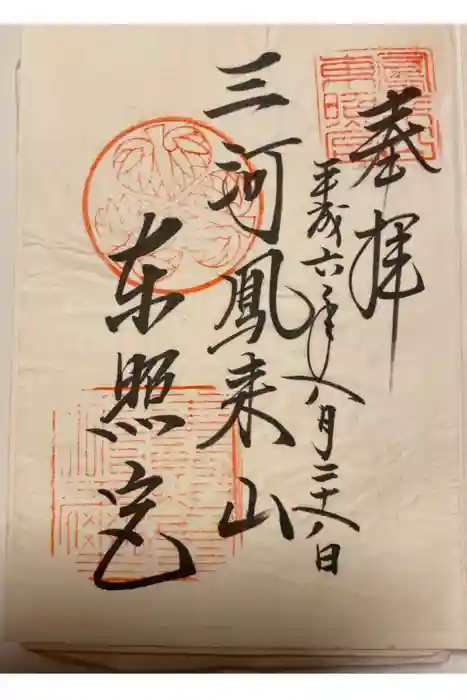 奉拝
平成六年八月二十八日
三河鳳来山
东照宮